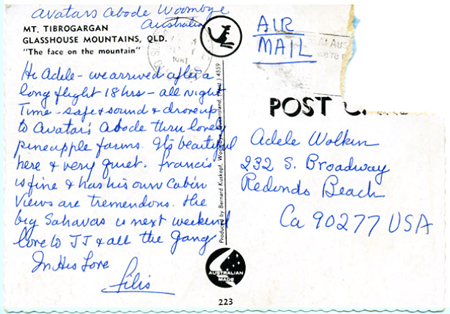 Avatars Abode Woombye
Australia
MT. TIBROGARGAN
GLASSHOUSE MOUNTAINS, QLD.
"The face on the mountain"
Hi Adele - we arrived after a
long flight 18 hrs - all night
Time - safe & sound & drove up
to Avatar's Abode thru lovely
pineapple farms. It's beautiful
here & very quiet. Francis
is fine & has his own Cabin
Views are tremendous. The
big Sahavas is next weekend
Love to JJ & all the Gang
In His Love
Filis
AIR
MAIL
POST
Adele Wolkin
232 S. Broadway
Redondo Beach
Ca 90277 USA
Produced by Bernard Kuskopf,
4559
AUSTRALIAN
MADE
223